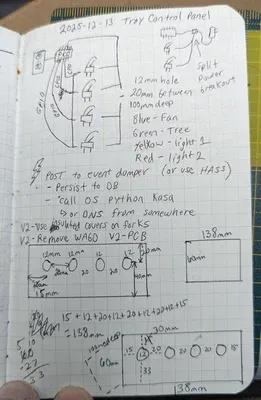 2025-12-13 Tray Control Panel
GPIO
GND
Split
Power
breakout
12mm hole
20mm between
100mm deep
Blue - Fan
Green - Tree
Yellow - light 1
Red - light 2
POST to event dumper (or use HASS)
- Persist to DB
- call OS python Kasa
↳ or DNS from somewhere
V2-Use insulated covers on forks
V2-Remove WAGO V2-PCB
12mm 12mm 12 12
20mm
20 20
40mm
15mm
138mm
60mm
15 + 12 + 20 + 12 + 20 + 12 + 20 + 12 + 15
= 138mm
100mm deep
20mm
15 12 20 20 20 15
60mm
33
138mm